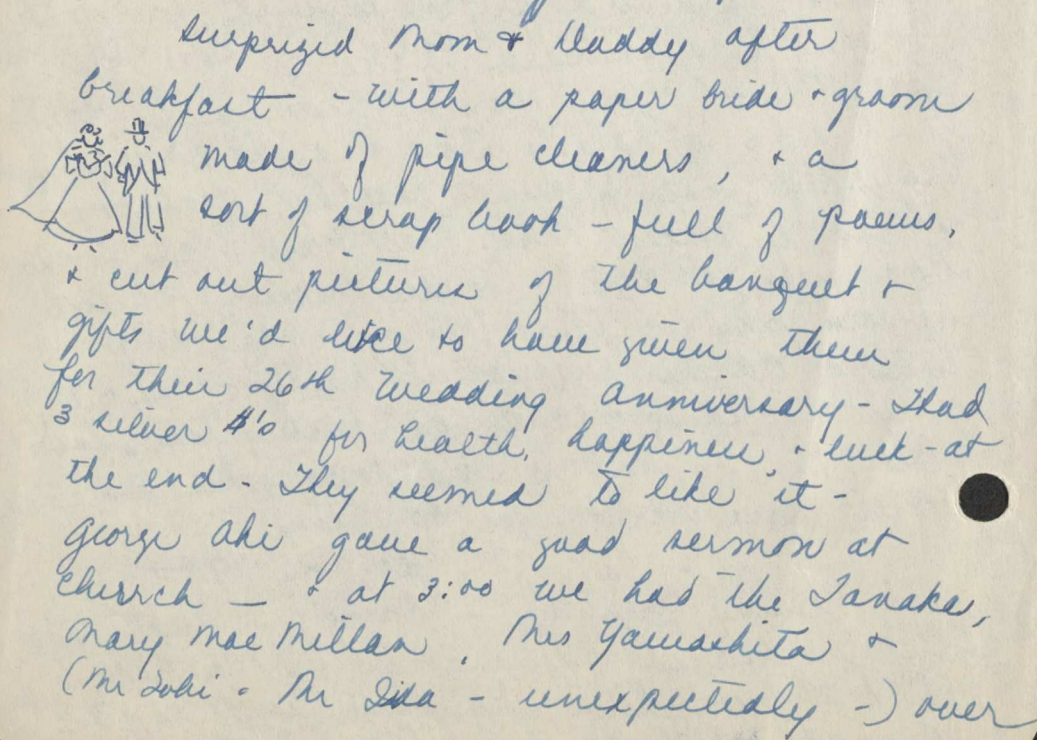 surprized Mom & Daddy after
breakfast - with a paper bride & groom
made of pipe cleaners, & a
sort of scrap book - full of poems,
& cut out pictures of the banquet &
gifts we'd like to have given them
for their 26th Wedding Anniversary - Had
3 silver $'s for health, happiness, & luck - at
the end. They seemed to like it -
George Aki gave a good sermon at
church — & at 3:00 we had the Tanakas,
Mary MacMillan, Mrs Yamashita &
(Mr & Mr Iida - unexpectedly -) over